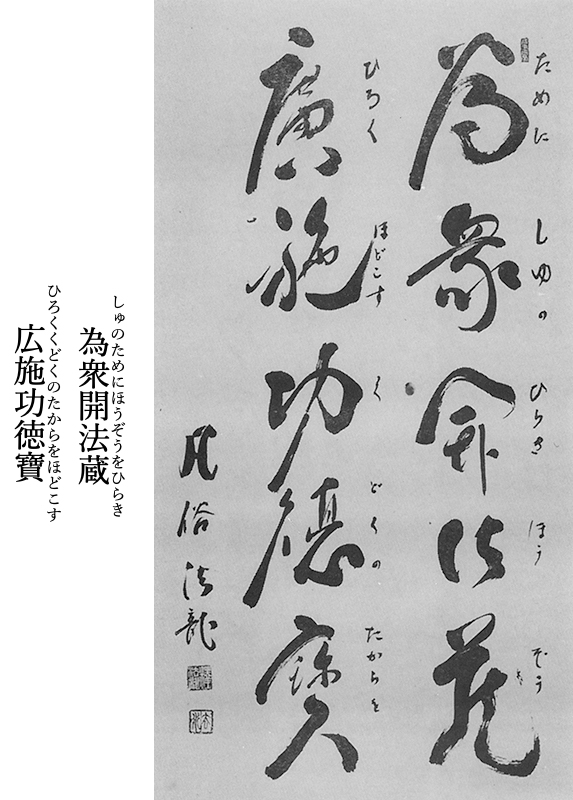 ために しゆの ひらき ほう ぞう
為衆開法蔵
ひろく ほどこす く どくの たからを
廣施功徳寳
凡俗法龍
しゅのためにほうぞうをひらき
為衆開法蔵
ひろくくどくのたからをほどこす
広施功徳寶